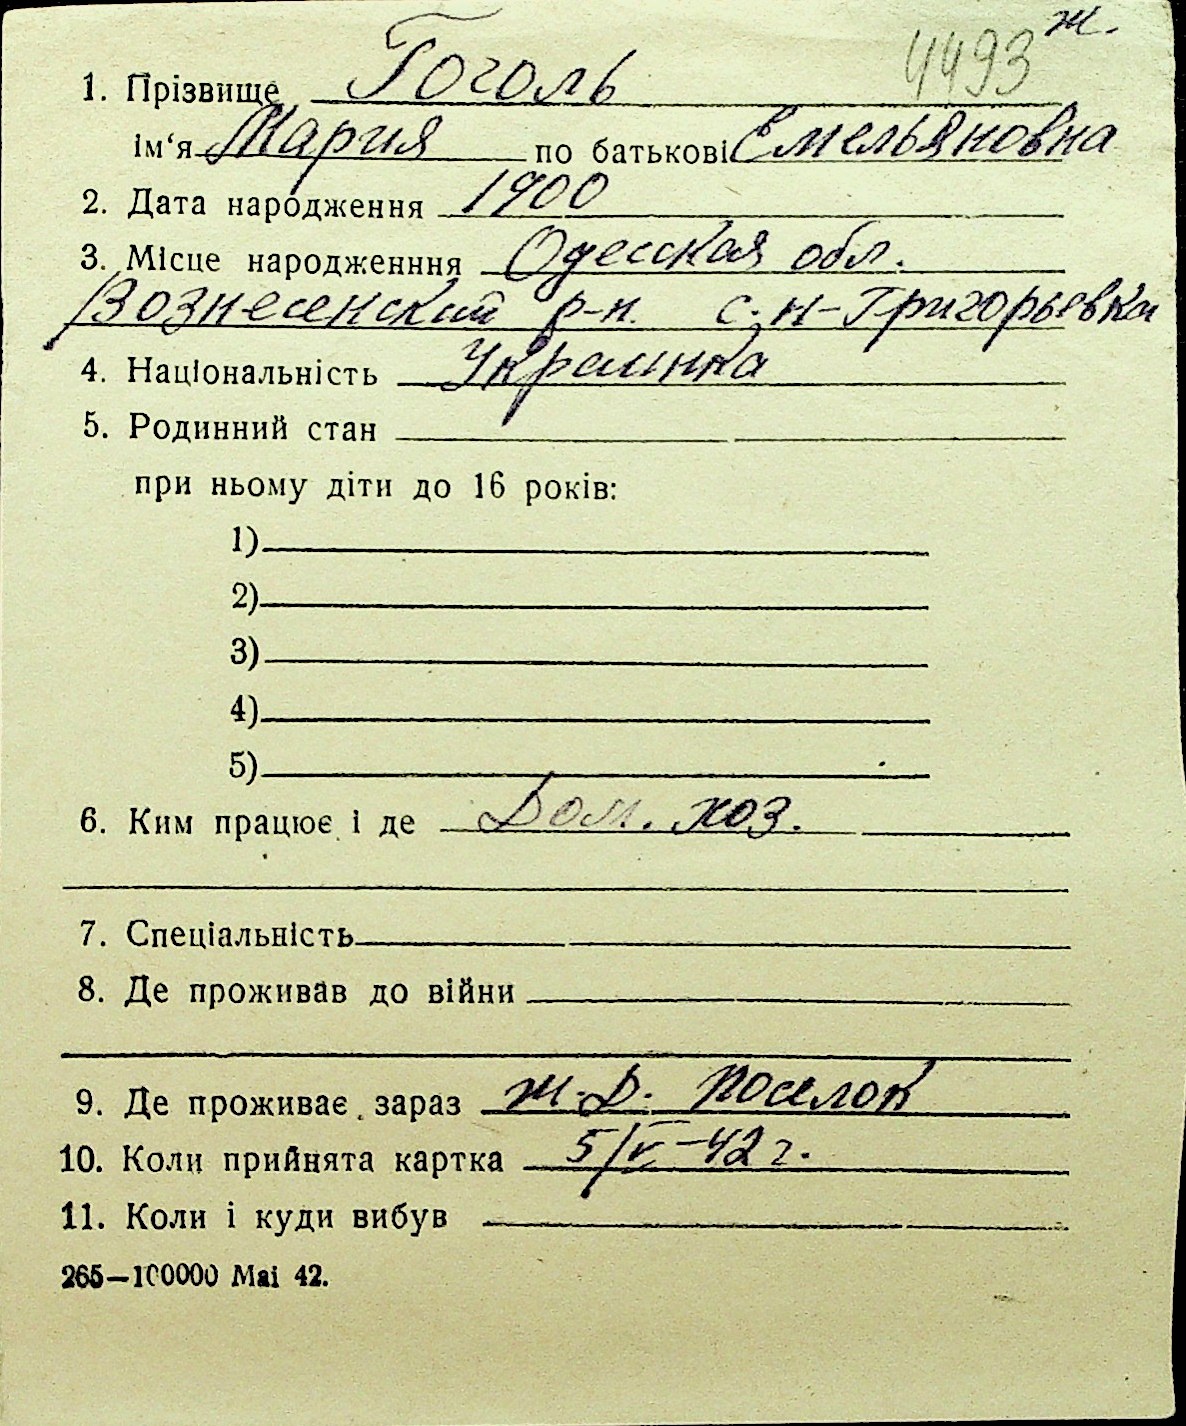 ж.
4493
1. Прізвище Гоголь
ім‘я Мария по батькові Емельяновна
2. Дата народження 1900
3. Місце народженння Одесская обл.
Вознесенский р-н. с. Н-Григорьевка
4. Національність Украинка
5. Родинний стан
при ньому діти до 16 років:
1)
2)
3)
4)
5)
6. Ким працює і де Дом. хоз.
7. Спеціальність
8. Де проживав до війни
9. Де проживає зараз Ж.Д. поселок
10. Коли прийнята картка 5/V-42 г.
11. Коли і куди вибув
265—100000 Маі 42.